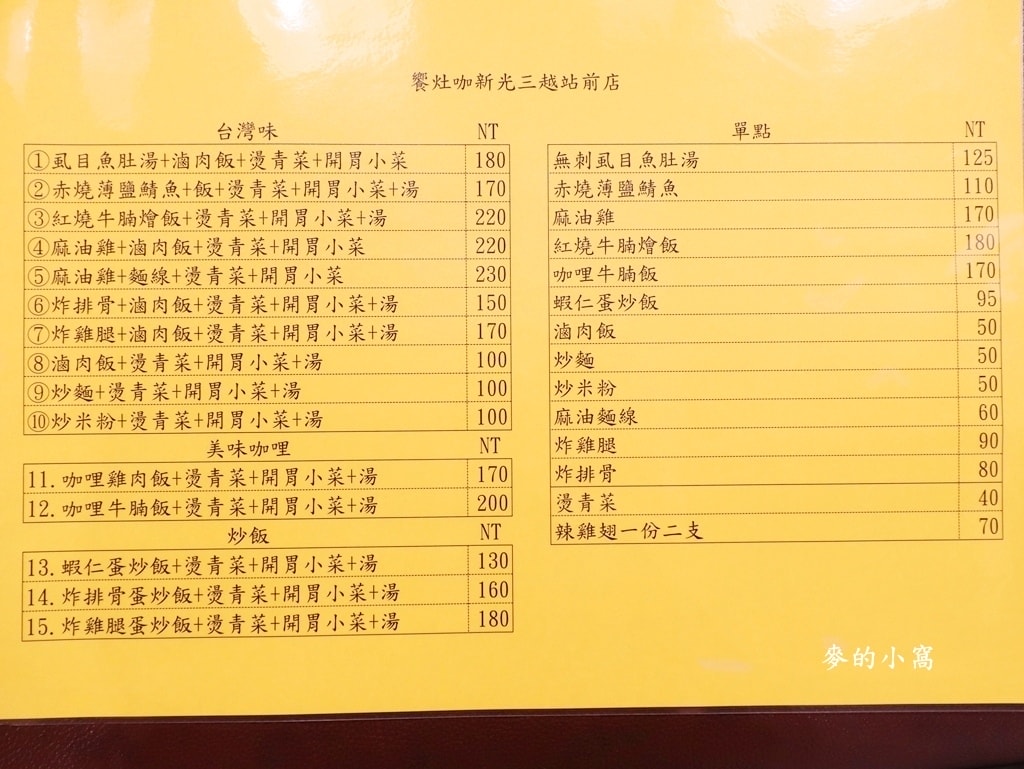 饗灶咖新光三越站前店
台灣味 NT
①虱目魚肚湯+滷肉飯+燙青菜+開胃小菜 180
②赤燒薄鹽鯖魚+飯+燙青菜+開胃小菜+湯 170
③紅燒牛腩燴飯+燙青菜+開胃小菜+湯 220
④麻油雞+滷肉飯+燙青菜+開胃小菜 220
⑤麻油雞+麵線+燙青菜+開胃小菜 230
⑥炸排骨+滷肉飯+燙青菜+開胃小菜+湯 150
⑦炸雞腿+滷肉飯+燙青菜+開胃小菜+湯 170
⑧滷肉飯+燙青菜+開胃小菜+湯 100
⑨炒麵+燙青菜+開胃小菜+湯 100
⑩炒米粉+燙青菜+開胃小菜+湯 100
美味咖哩 NT
11.咖哩雞肉飯+燙青菜+開胃小菜+湯 170
12.咖哩牛腩飯+燙青菜+開胃小菜+湯 200
炒飯 NT
13.蝦仁蛋炒飯+燙青菜+開胃小菜+湯 130
14.炸排骨蛋炒飯+燙青菜+開胃小菜+湯 160
15.炸雞腿蛋炒飯+燙青菜+開胃小菜+湯 180
單點 NT
無刺虱目魚肚湯 125
赤燒薄鹽鯖魚 110
麻油雞 170
紅燒牛腩燴飯 180
咖哩牛腩飯 170
蝦仁蛋炒飯 95
滷肉飯 50
炒麵 50
炒米粉 50
麻油麵線 60
炸雞腿 90
炸排骨 80
燙青菜 40
辣雞翅一份二支 70
麥的小窩